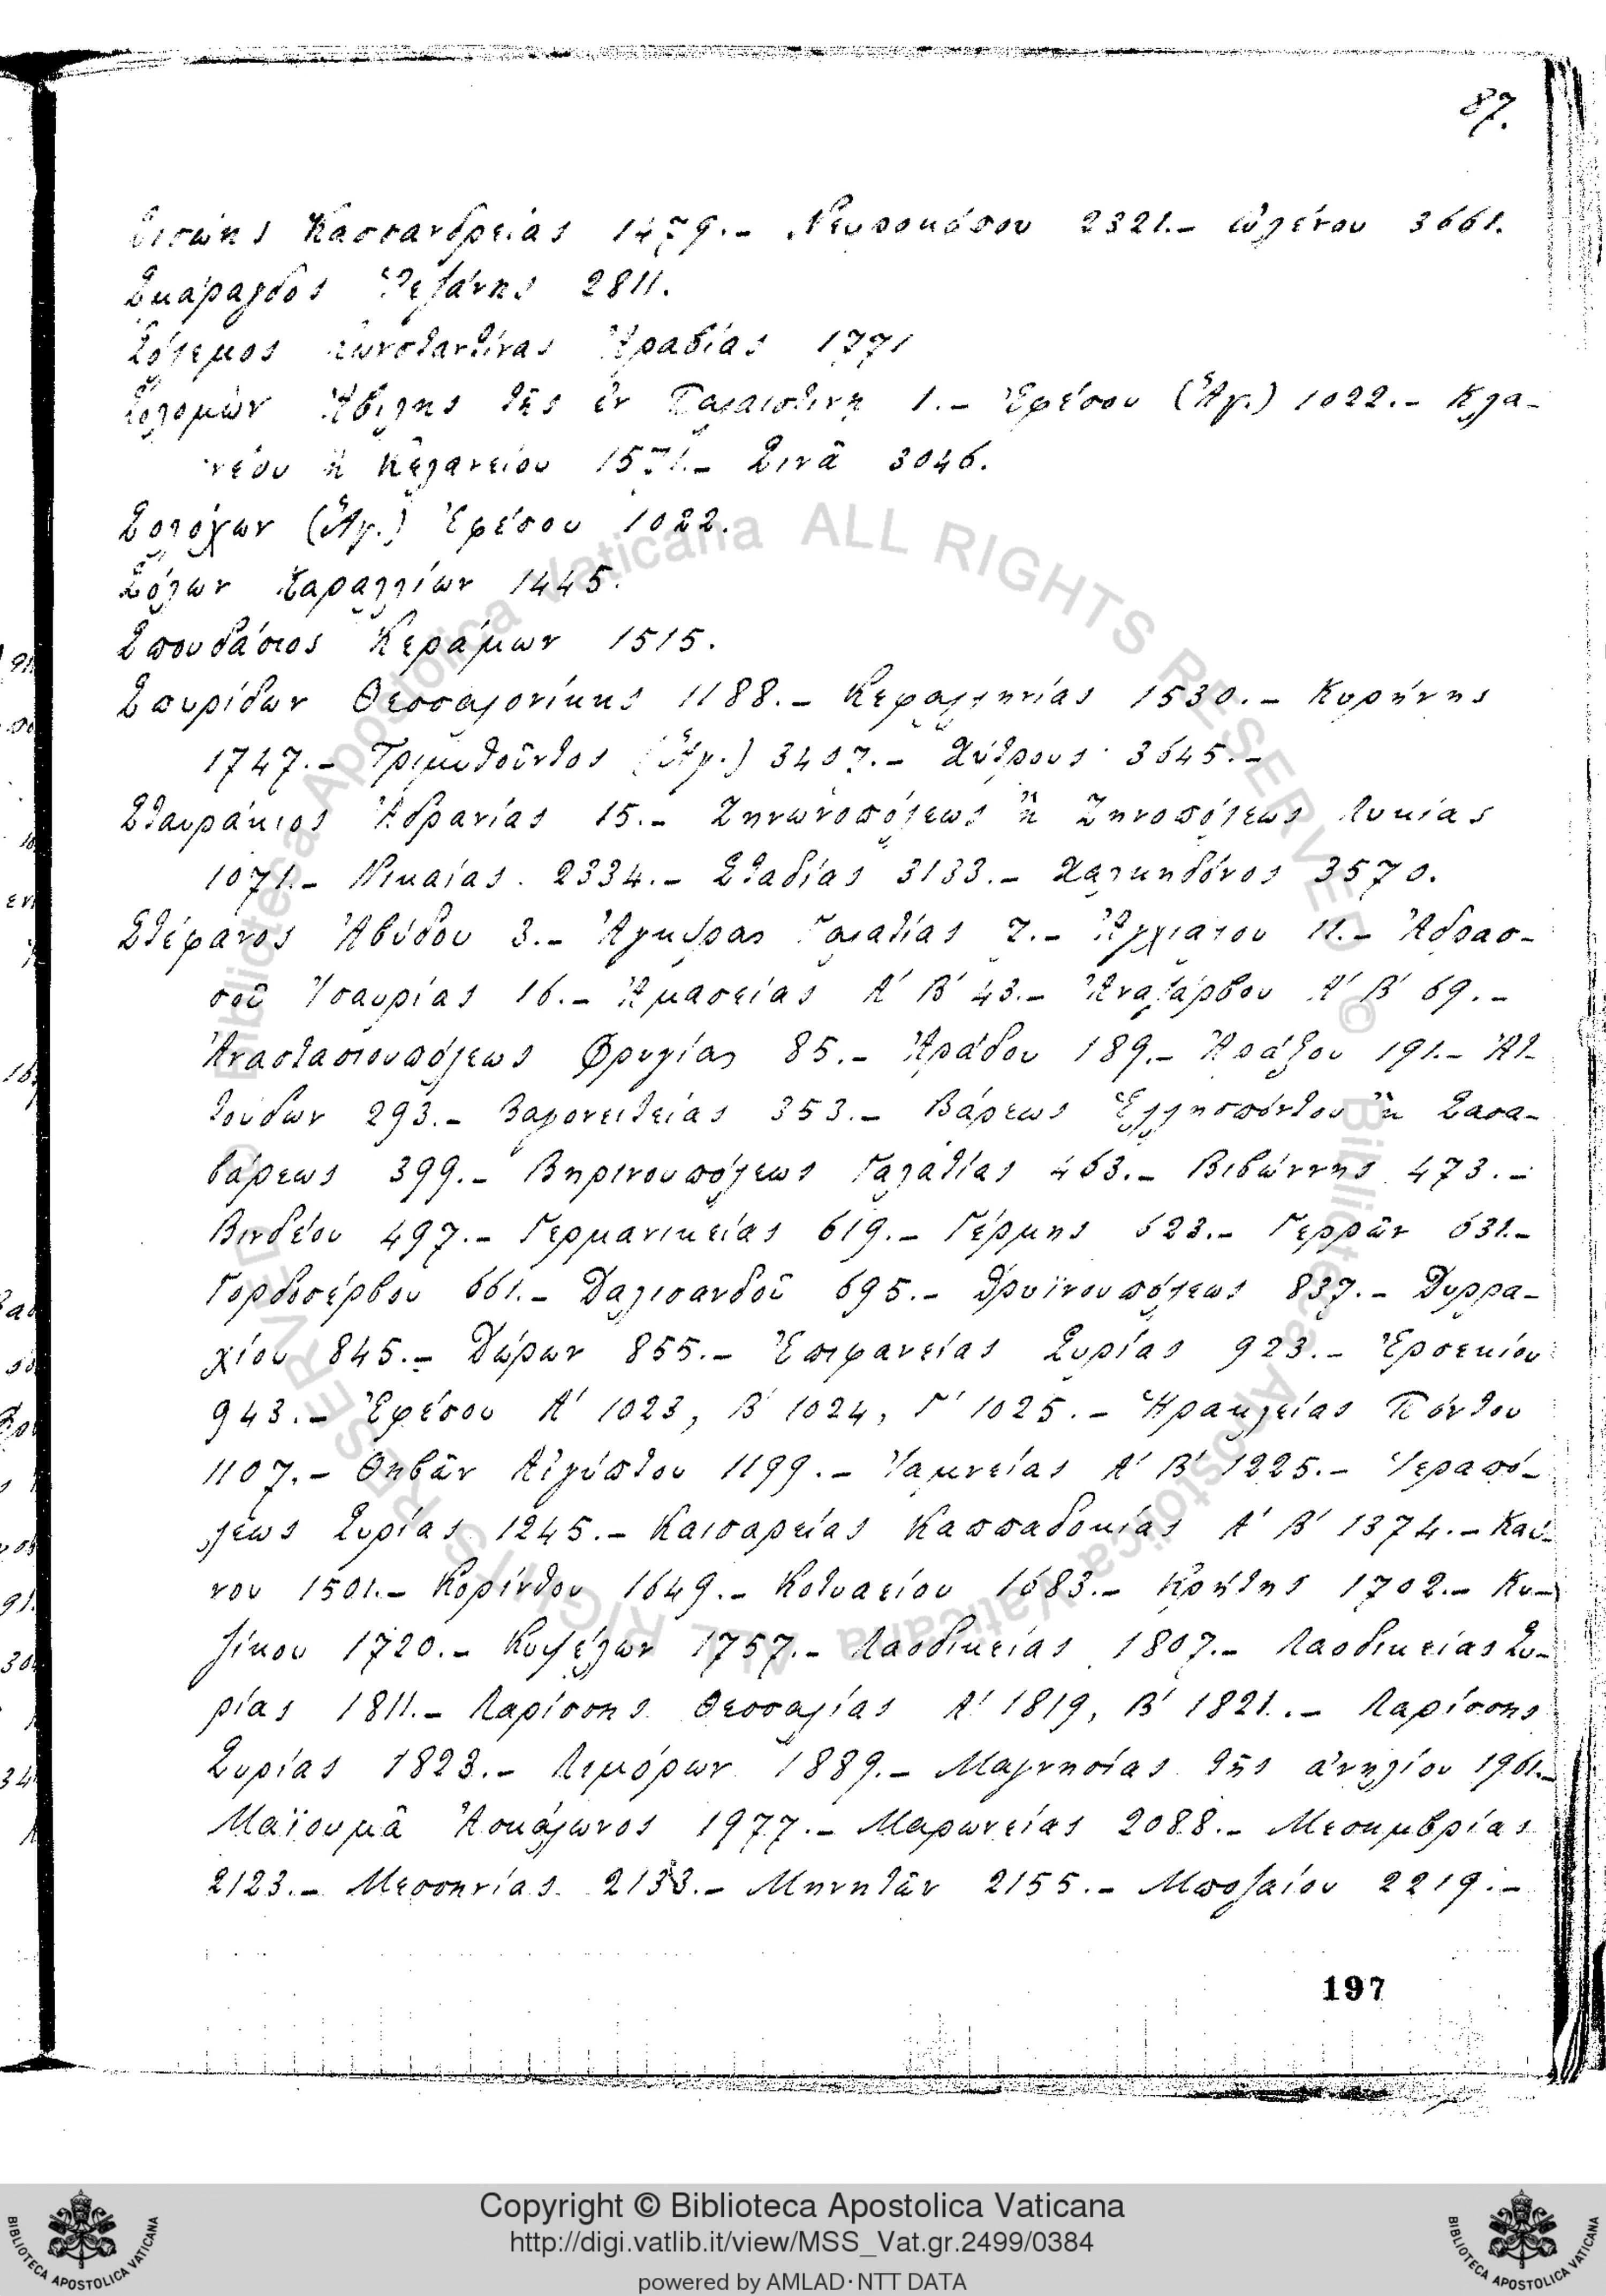 87.
Σισώης Κασσανδρείας 1479.– Νευροκόπου 2321.– Ὠλένου 3661.
Σμάραγδος Ῥεζάνης 2811.
Σόλεμος Κωνσταντίνας Ἀραβίας 1771
Σολομὼν Ἀβίλης τῆς ἐν Παλαιστίνῃ 1.– Ἐφέσου (Ἁγ.) 1022.– Κλα-
νέου ἢ Κελανείου 1571.– Σινᾶ 3046.
Σολόχων (Ἁγ.) Ἐφέσου 1022.
Σόλων Καραλλίων 1445.
Σπουδάσιος Κεράμων 1515.
Σπυρίδων Θεσσαλονίκης 1188.– Κεφαλληνίας 1530.– Κυρήνης
1747.– Τριμυθοῦντος (Ἁγ.) 3407.– Χύτρους 3645.–
Σταυράκιος Ἀδρανίας 15.– Ζηνωνοπόλεως ἢ Ζηνοπόλεως Λυκίας
1071.– Νικαίας 2334.– Σταδίας 3133.– Χαλκηδόνος 3570.
Στέφανος Ἀβύδου 3.– Ἀγκύρας Γαλατίας 7.– Ἀγχιάλου 11.– Ἀδρασ-
σοῦ Ἰσαυρίας 16.– Ἀμασείας Α΄ Β΄ 43.– Ἀναζάρβου Α΄ Β΄ 69.–
Ἀναστασιουπόλεως Φρυγίας 85.– Ἀράδου 189.– Ἀράξου 191.– Ἀτ-
τούδων 293.– Βαγονειτείας 353.– Βάρεως Ἑλλησπόντου ἢ Σασα-
βάρεως 399.– Βηρινουπόλεως Γαλατίας 463.– Βιβώννης 473.–
Βινδέου 497.– Γερμανικείας 619.– Γέρμης 623.– Γερρῶν 631.–
Γορδοσέρβου 661.– Δαλισανδοῦ 695.– Δρυϊνουπόλεως 837.– Δυρρα-
χίου 845.– Δώρων 855.– Ἐπιφανείας Συρίας 923.– Ἐρσεκίου
943.– Ἐφέσου Α΄ 1023, Β΄ 1024, Γ΄ 1025.– Ἡρακλείας Πόντου
1107.– Θηβῶν Αἰγύπτου 1199.– Ἰαμνείας Α΄ Β΄ 1225.– Ἱεραπό-
λεως Συρίας 1245.– Καισαρείας Καππαδοκίας Α΄ Β΄ 1374.– Καύ-
νου 1501.– Κορίνθου 1649.– Κοτυαείου 1683.– Κρήτης 1702.– Κυ-
ζίκου 1720.– Κυψέλων 1757.– Λαοδικείας 1807.– Λαοδικείας Συ-
ρίας 1811.– Λαρίσσης Θεσσαλίας Α΄ 1819, Β΄ 1821.– Λαρίσσης
Συρίας 1823.– Λιμύρων 1889.– Μαγνησίας τῆς ἀνηλίου 1961.–
Μαϊουμᾶ Ἀσκάλωνος 1977.– Μαρωνείας 2088.– Μεσημβρίας
2123.– Μεσσηνίας 2133.– Μηνητῶν 2155.– Μπολαίου 2219.–
197
Copyright © Biblioteca Apostolica Vaticana
http://digi.vatlib.it/view/MSS_Vat.gr.2499/0384
powered by AMLAD·NTT DATA